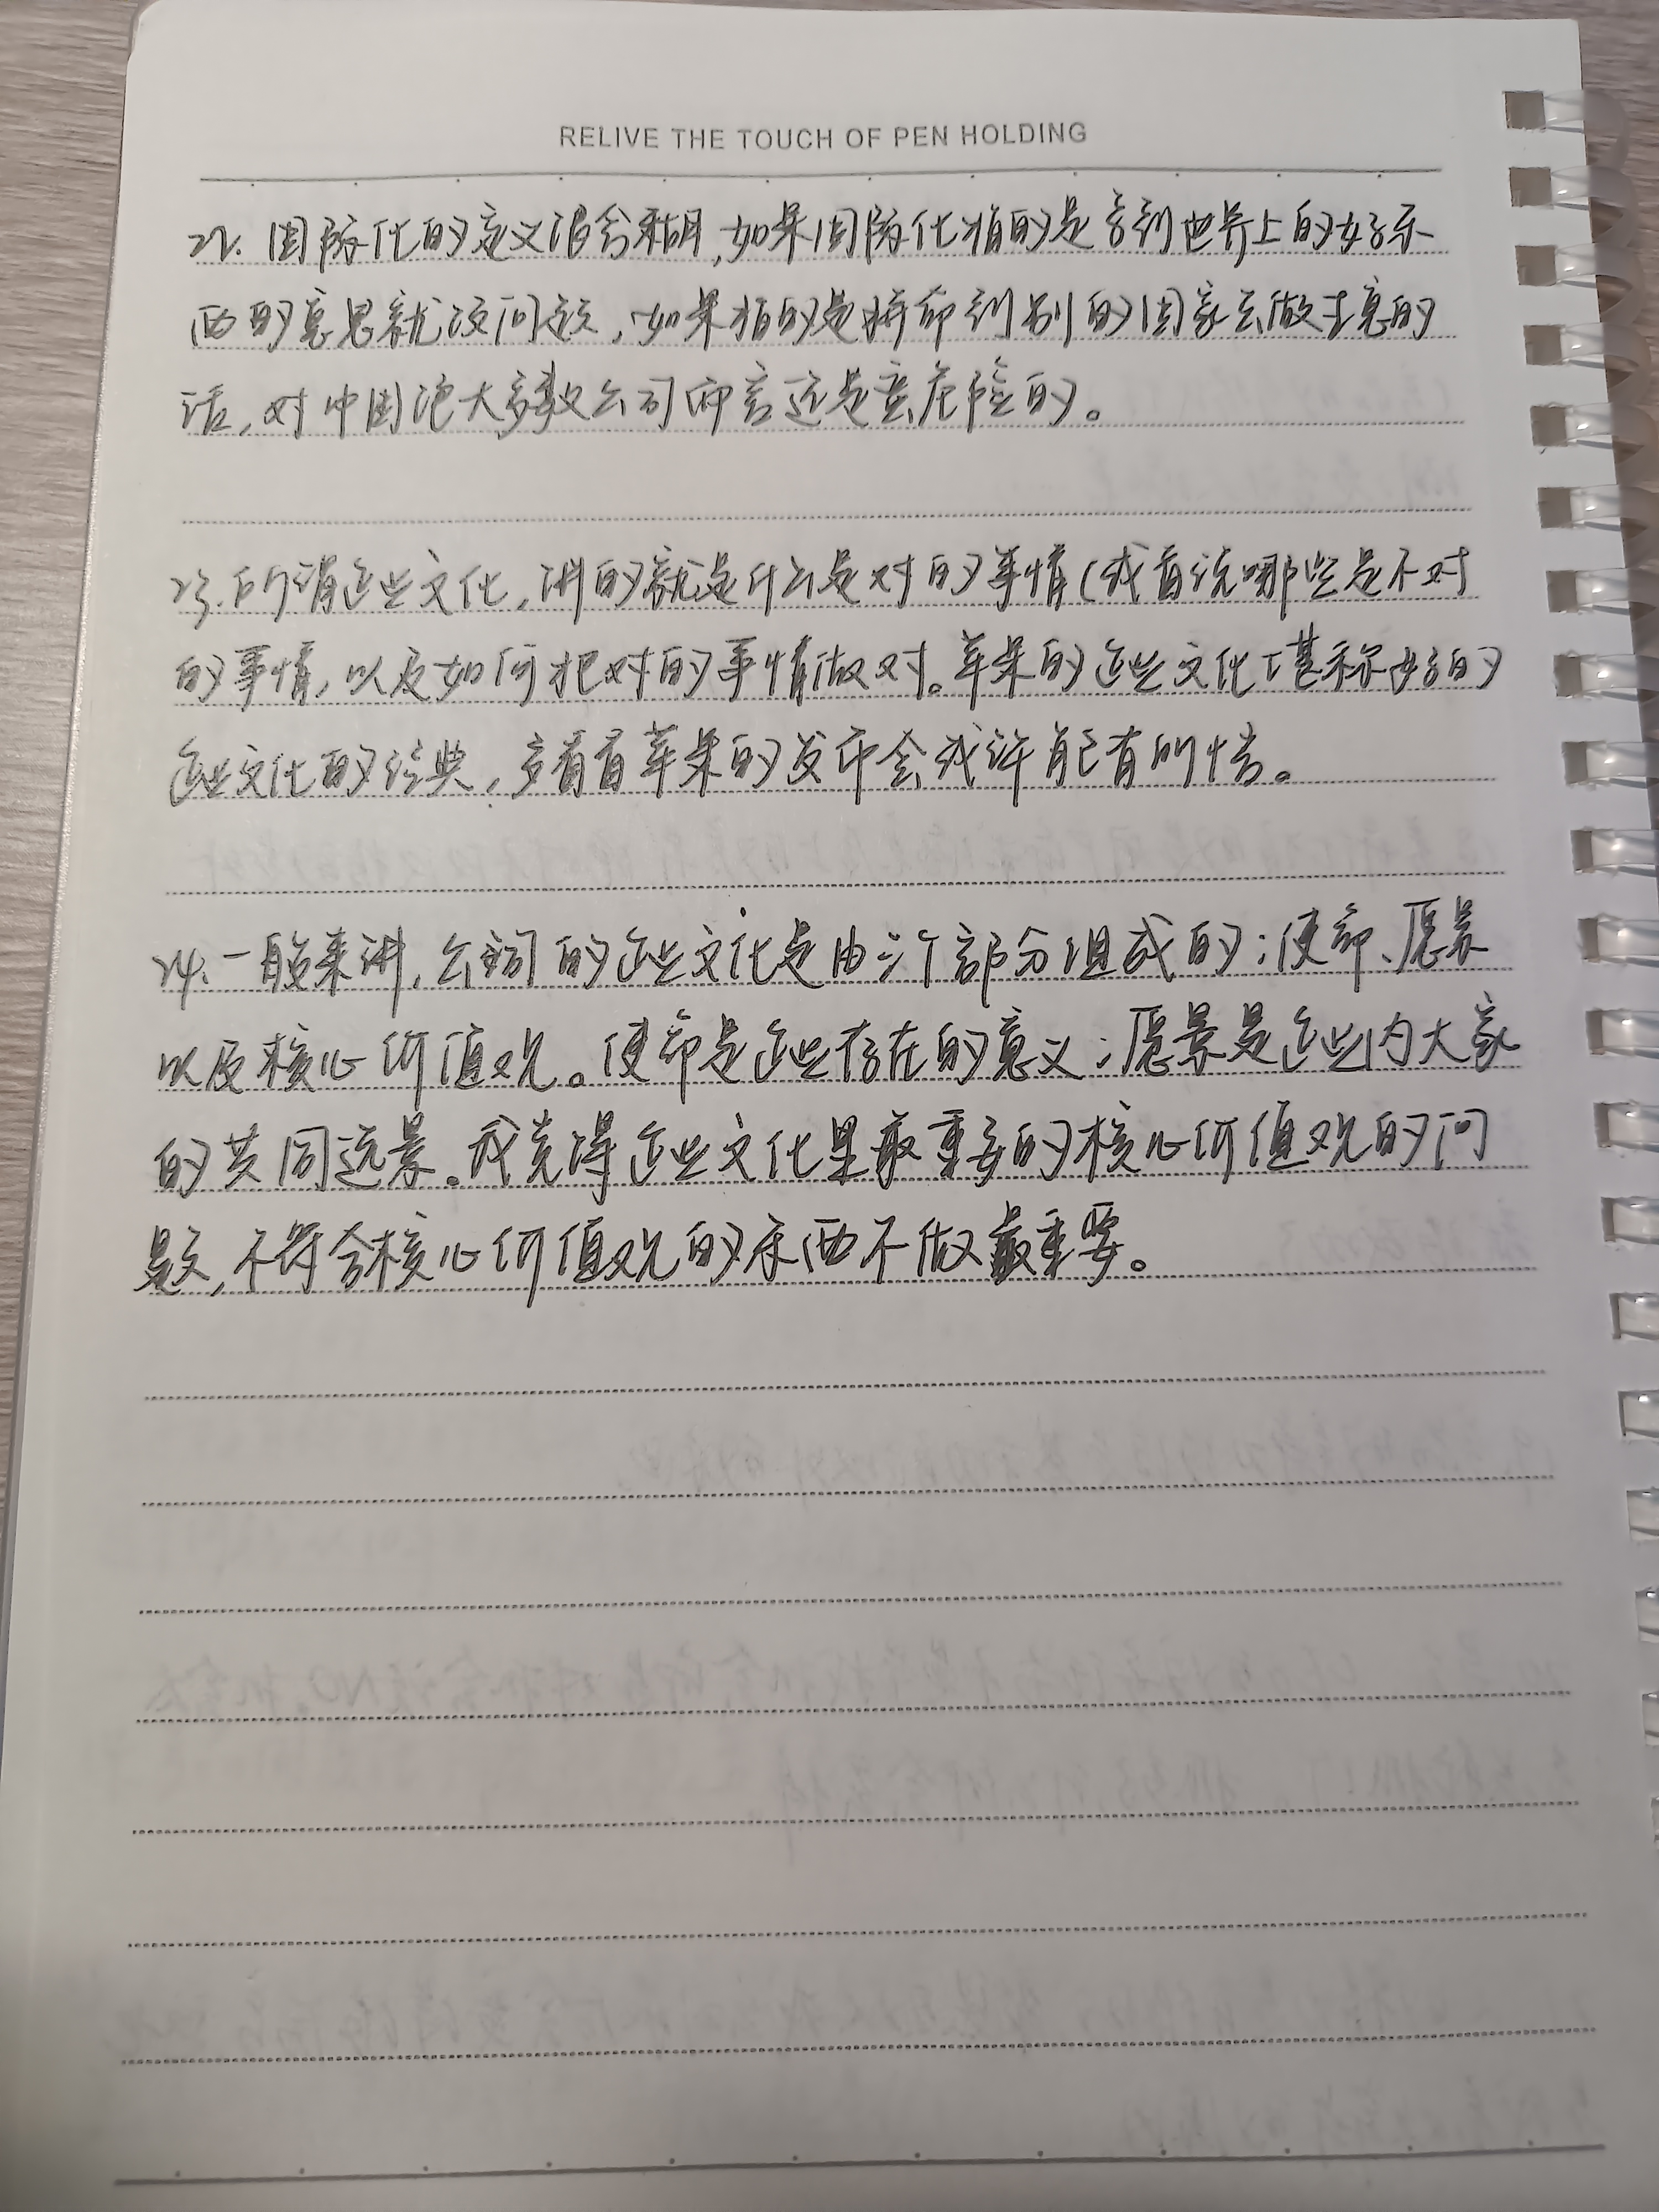 RELIVE THE TOUCH OF PEN HOLDING
22. 国际化的定义很含糊,如果国际化指的是拿到世界上的好东
西的意思就没问题,如果指的是拼命到别的国家去做生意的
话,对中国绝大多数公司而言还是蛮危险的。
23. 所谓企业文化,讲的就是什么是对的事情(或者说哪些是不对
的事情,以及如何把对的事情做对。苹果的企业文化堪称好的
企业文化的经典,多看看苹果的发布会或许能有所悟。
24. 一般来讲,公司的企业文化是由三个部分组成的:使命、愿景
以及核心价值观。使命是企业存在的意义;愿景是企业内大家
的共同远景。我觉得企业文化里最重要的核心价值观的问
题,不符合核心价值观的东西不做最重要。